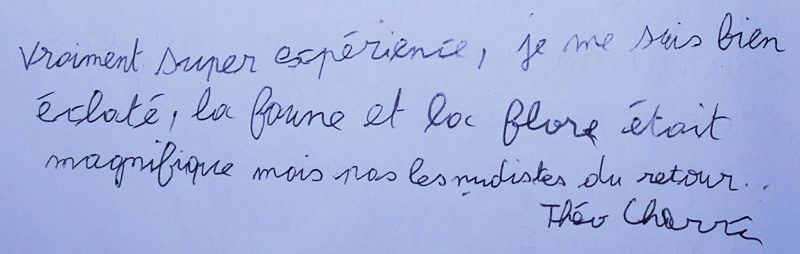 Vraiment super expérience, je me suis bien
éclaté, la faune et la flore était
magnifique mais pas les nudistes du retour..
Théo Charré